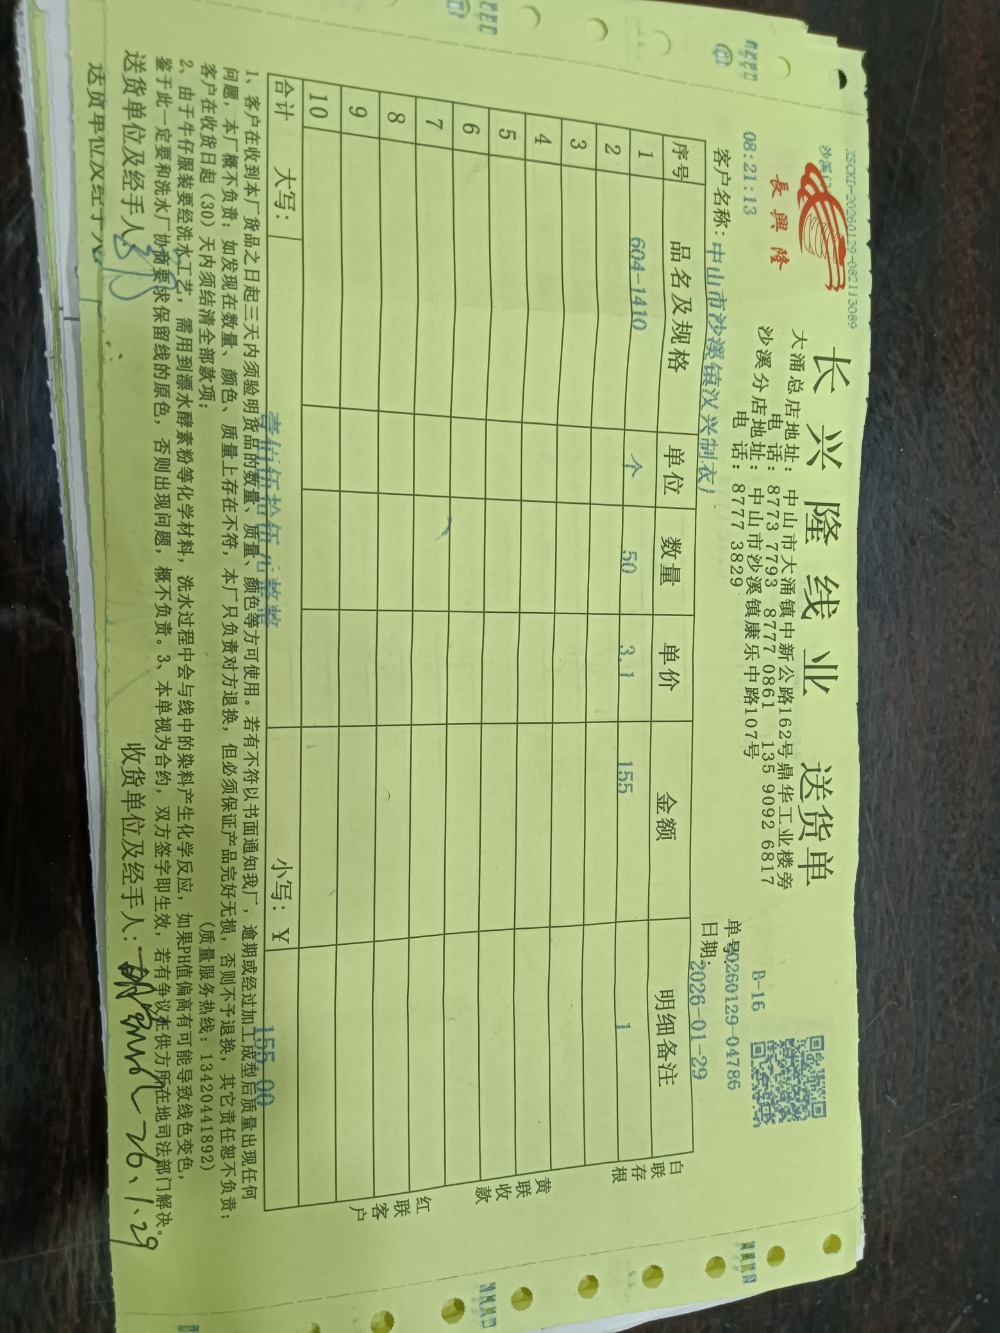 XSCKD-20260129-082113089
長興隆
长兴隆线业 送货单
大涌总店地址：中山市大涌镇中新公路162号鼎华工业楼旁
电 话：8773 7793 8777 0861 135 9092 6817
沙溪分店地址：中山市沙溪镇康乐中路107号
电 话：8777 3829
B-16
08:21:13
单号20260129-04786
客户名称：中山市沙溪镇汉兴制衣厂
日期：2026-01-29
序号 品名及规格 单位 数量 单价 金额 明细备注
1 604-1410 个 50 3.1 155 1
2
3
4
5
6
7
8
9
10
合计 大写：壹佰伍拾伍元整 小写：￥ 155.00
白联存根
黄联收款
红联客户
1、客户在收到本厂货品之日起三天内须验明货品的数量、质量、颜色等方可使用。若有不符以书面通知我厂，逾期或经过加工成型后质量出现任何
问题，本厂概不负责；如发现在数量、颜色、质量上存在不符，本厂只负责对方退换，但必须保证产品完好无损，否则不予退换，其它责任恕不负责；
客户在收货日起（30）天内须结清全部款项； （质量服务热线：13420441892）
2、由于牛仔服装要经洗水工艺，需用到漂水酵素粉等化学材料，洗水过程中会与线中的染料产生化学反应，如果PH值偏高有可能导致线色变色，
鉴于此一定要和洗水厂协商要求保留线的原色，否则出现问题，概不负责。3、本单视为合约，双方签字即生效，若有争议在供方所在地司法部门解决。
送货单位及经手人： 收货单位及经手人： 26.1.29
送货单位及经手人